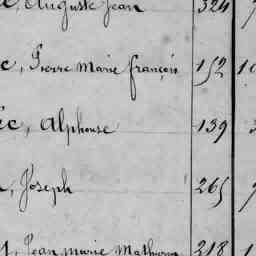 , Auguste Jean 324
c, Pierre Marie François 152 10
ec, Alphonse 139 3
, Joseph 265
, Jean marie Mathurin 218 1